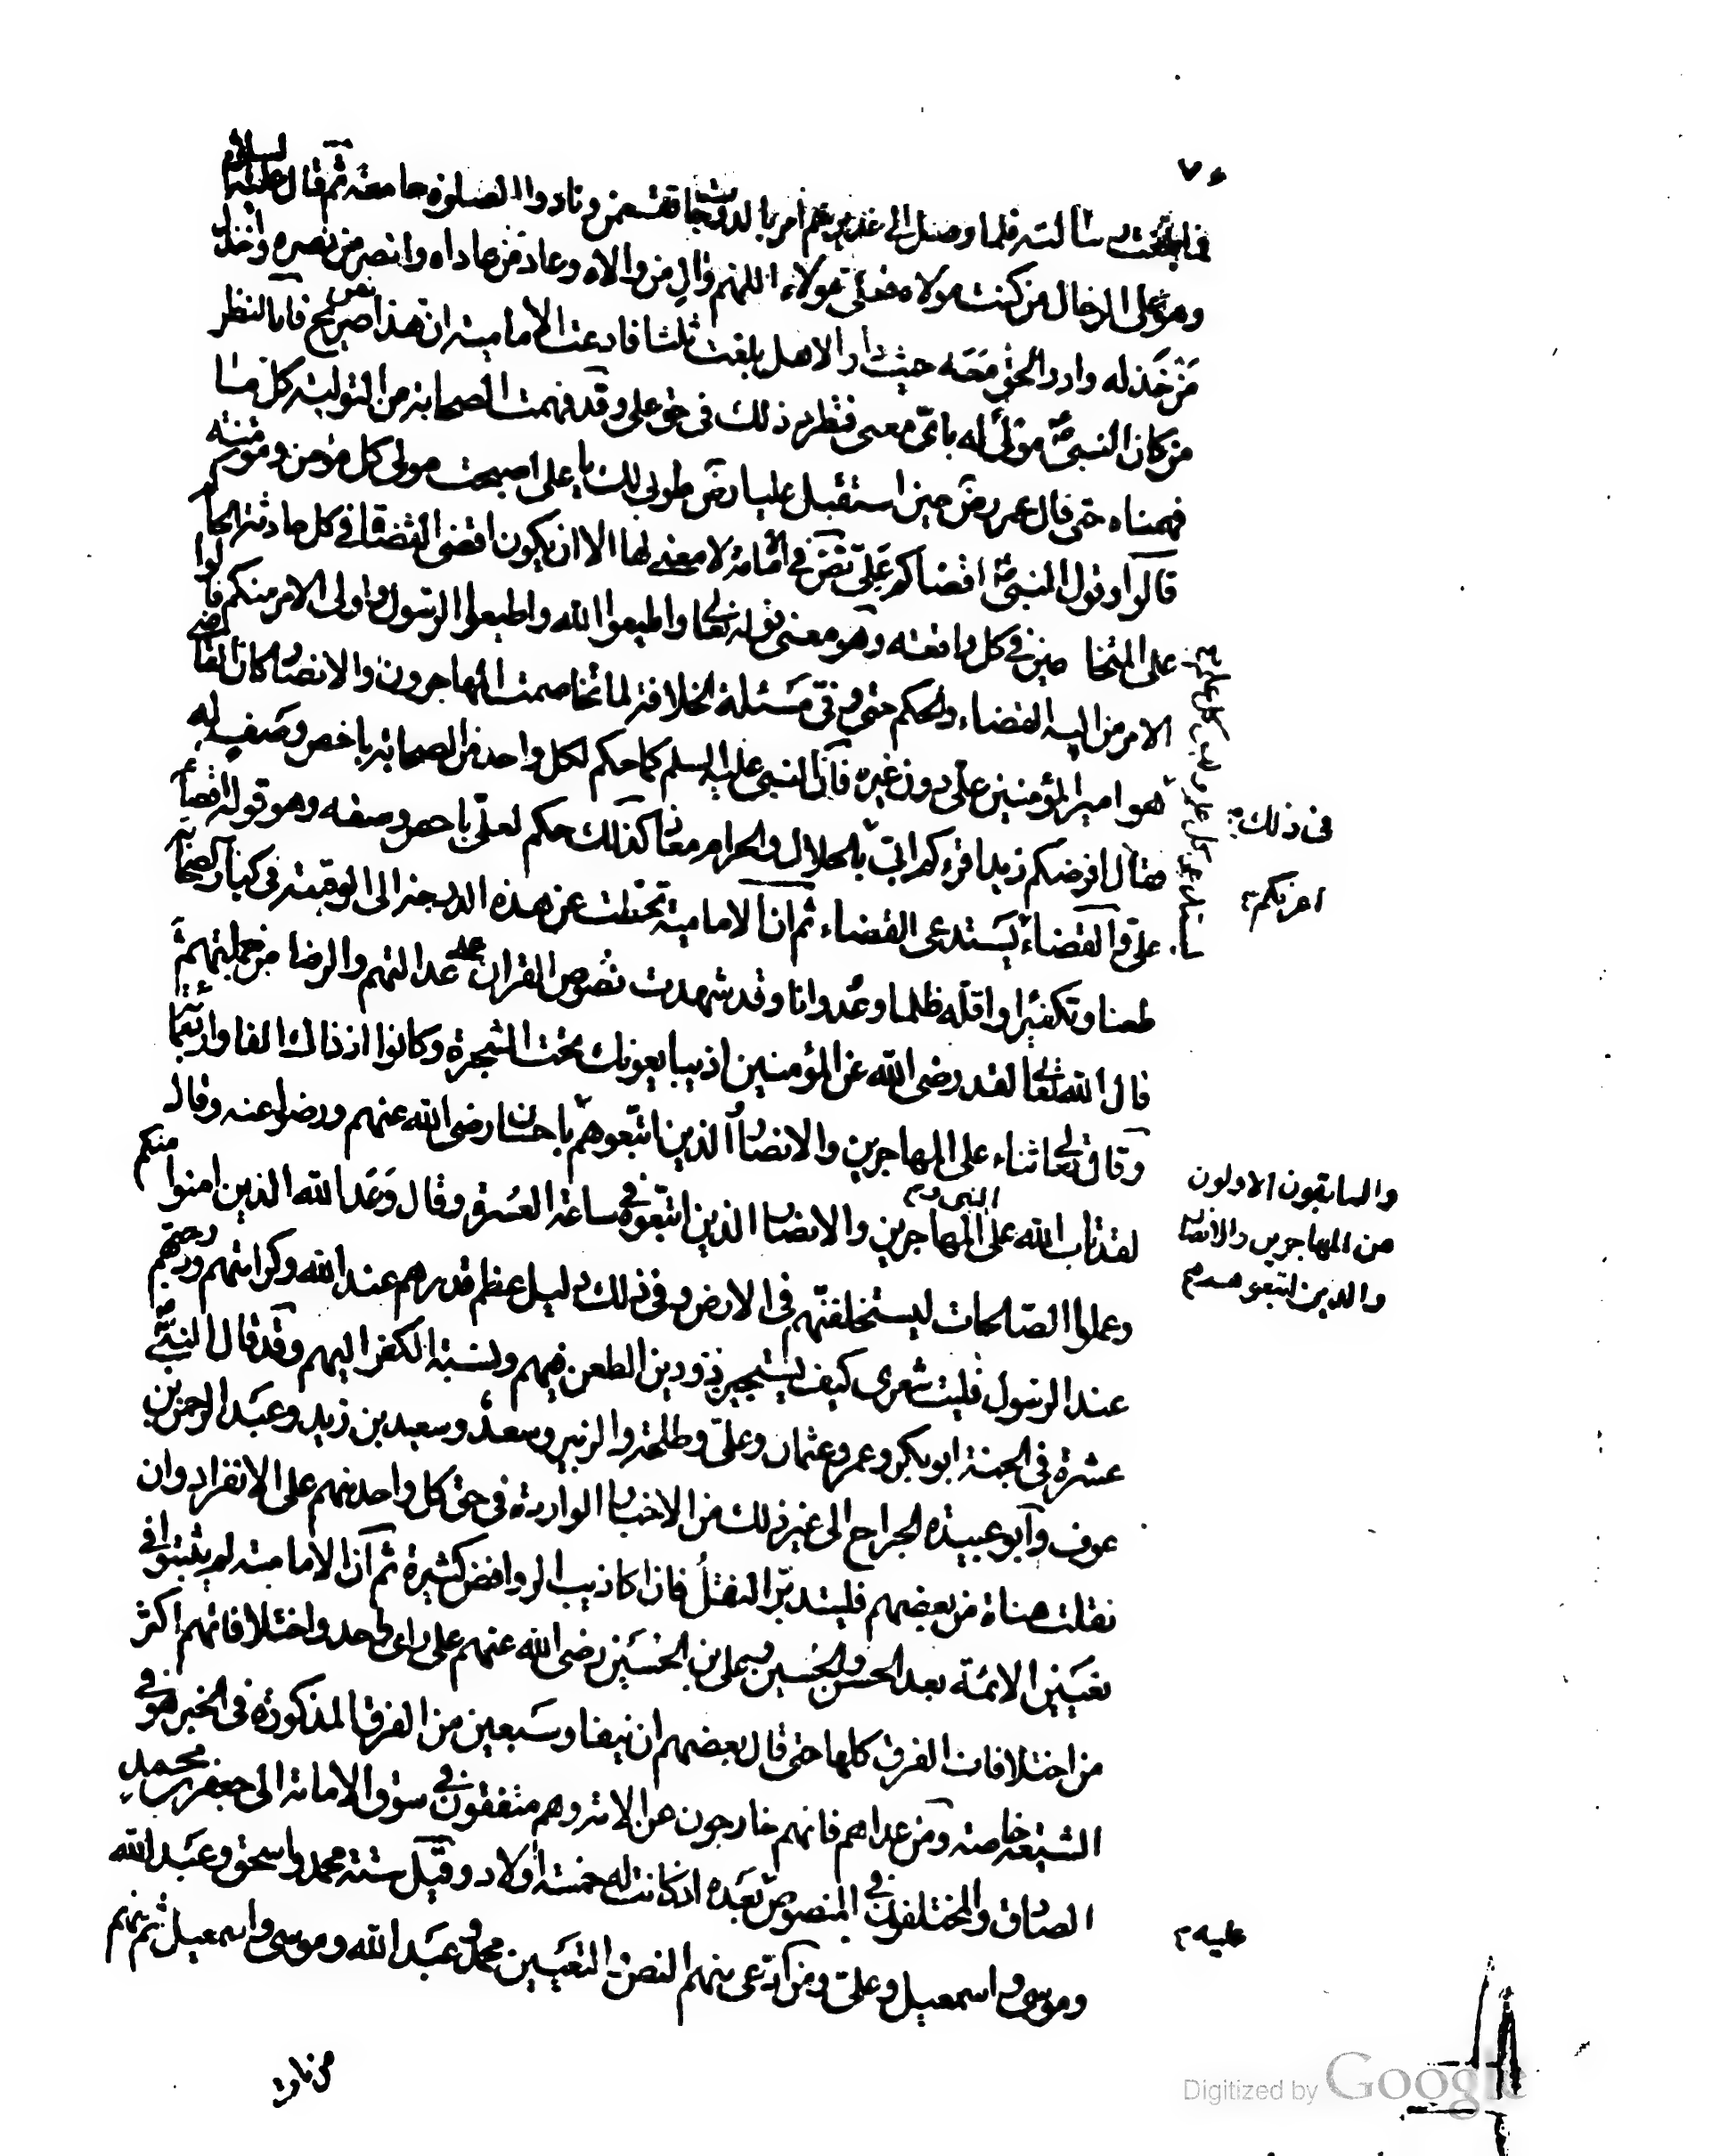 فما بلغت رسالته فلما وصل الى غدير خم امر بالدرجات فقممن ونادوا الصلوة جامعة ثم قال عليه السلام
وهو على الرحال من كنت مولاه فعلى مولاه اللهم وال من والاه وعاد من عاداه وانصر من نصره واخذل
من خذله وادر الحق معه حيث دار الاهل بلغت ثلثا فادعت الامامية ان هذا نص صريح فانا ننظر
من كان النبى مولى له باى معنى فنطرد ذلك فى حق على وقد فهمت الصحابة من التولية كل ما
فهمناه حتى قال عمر رضى حين استقبل عليا رضى طوبى لك يا على اصبحت مولى كل مؤمن ومؤمنة
قالوا وقول النبى اقضاكم على نص فى الامامة لا معنى لها الا ان يكون اقضى القضاة فى كل حادثة الحاكم
على المتخاصمين فى كل واقعة وهو معنى قوله تعالى واطيعوا الله واطيعوا الرسول واولى الامر منكم قالوا
الامر من اليه القضاء والحكم حتى وفى مسئلة الخلافة لما تخاصمت المهاجرون والانصار كان القاضى
هو امير المؤمنين على دون غيره فان النبى عليه السلم كما حكم لكل واحد من الصحابة باخص وصف له
فقال افرضكم زيد اقرءكم ابى بالحلال والحرام معاذ كذلك حكم لعلى باخص وصفه وهو قوله اقضاكم
على والقضاء يستدعى القضاء ثم ان الامامية تخطت عن هذه الدرجة الى الوقيعة فى كبار الصحابة
طعنا وتكفيرا واقله ظلما وعدوانا وقد شهدت نصوص القران على عدالتهم والرضا من جملتهم
قال الله تعالى لقد رضى الله عن المؤمنين اذ يبايعونك تحت الشجرة وكانوا اذ ذاك الفا واربعمائة
وقال تعالى ثناء على المهاجرين والانصار الذين اتبعوهم باحسان رضى الله عنهم ورضوا عنه وقال
لقد تاب الله على النبى المهاجرين والانصار الذين اتبعوه فى ساعة العسرة وقال وعد الله الذين امنوا منكم
وعملوا الصالحات ليستخلفنهم فى الارض وفى ذلك دليل عظم قدرهم عند الله وكرامتهم ودرجتهم
عند الرسول فليت شعرى كيف يستجيز ذو دين الطعن فيهم ونسبة الكفر اليهم وقد قال النبى
عشرة فى الجنة ابو بكر وعمر وعثمان وعلى وطلحة والزبير وسعد وسعيد بن زيد وعبد الرحمن بن
عوف وابو عبيدة الجراح الى غير ذلك من الاخبار الواردة فى حق كل واحد منهم على الانفراد وان
نقلت هناة من بعضهم فليتدبر النقل فان اكاذيب الروافض كثيرة ثم ان الامامية لم يثبتوا فى
تعيين الائمة بعد الحسن والحسين وعلى بن الحسين رضى الله عنهم على راى واحد واختلافاتهم اكثر
من اختلافات الفرق كلها حتى قال بعضهم ان نيفا وسبعين من الفرق المذكورة فى الخبر هو فى
الشيعة خاصة ومن عداهم فانهم خارجون عن الامة وهم متفقون فى سوق الامامة الى جعفر بن محمد
الصادق والمختلفون فى المنصوص بعده اذ كانت له خمسة اولاد وقيل ستة محمد واسحق وعبد الله
وموسى واسمعيل وعلى ومن ادعى منهم النص والتعيين محمد وعبد الله وموسى واسمعيل ثم منهم
فى ذلك
اعرفكم
والسابقون الاولون
من المهاجرين والانصار
والذين اتبعوهم
عليه
من مات
Digitized by Google